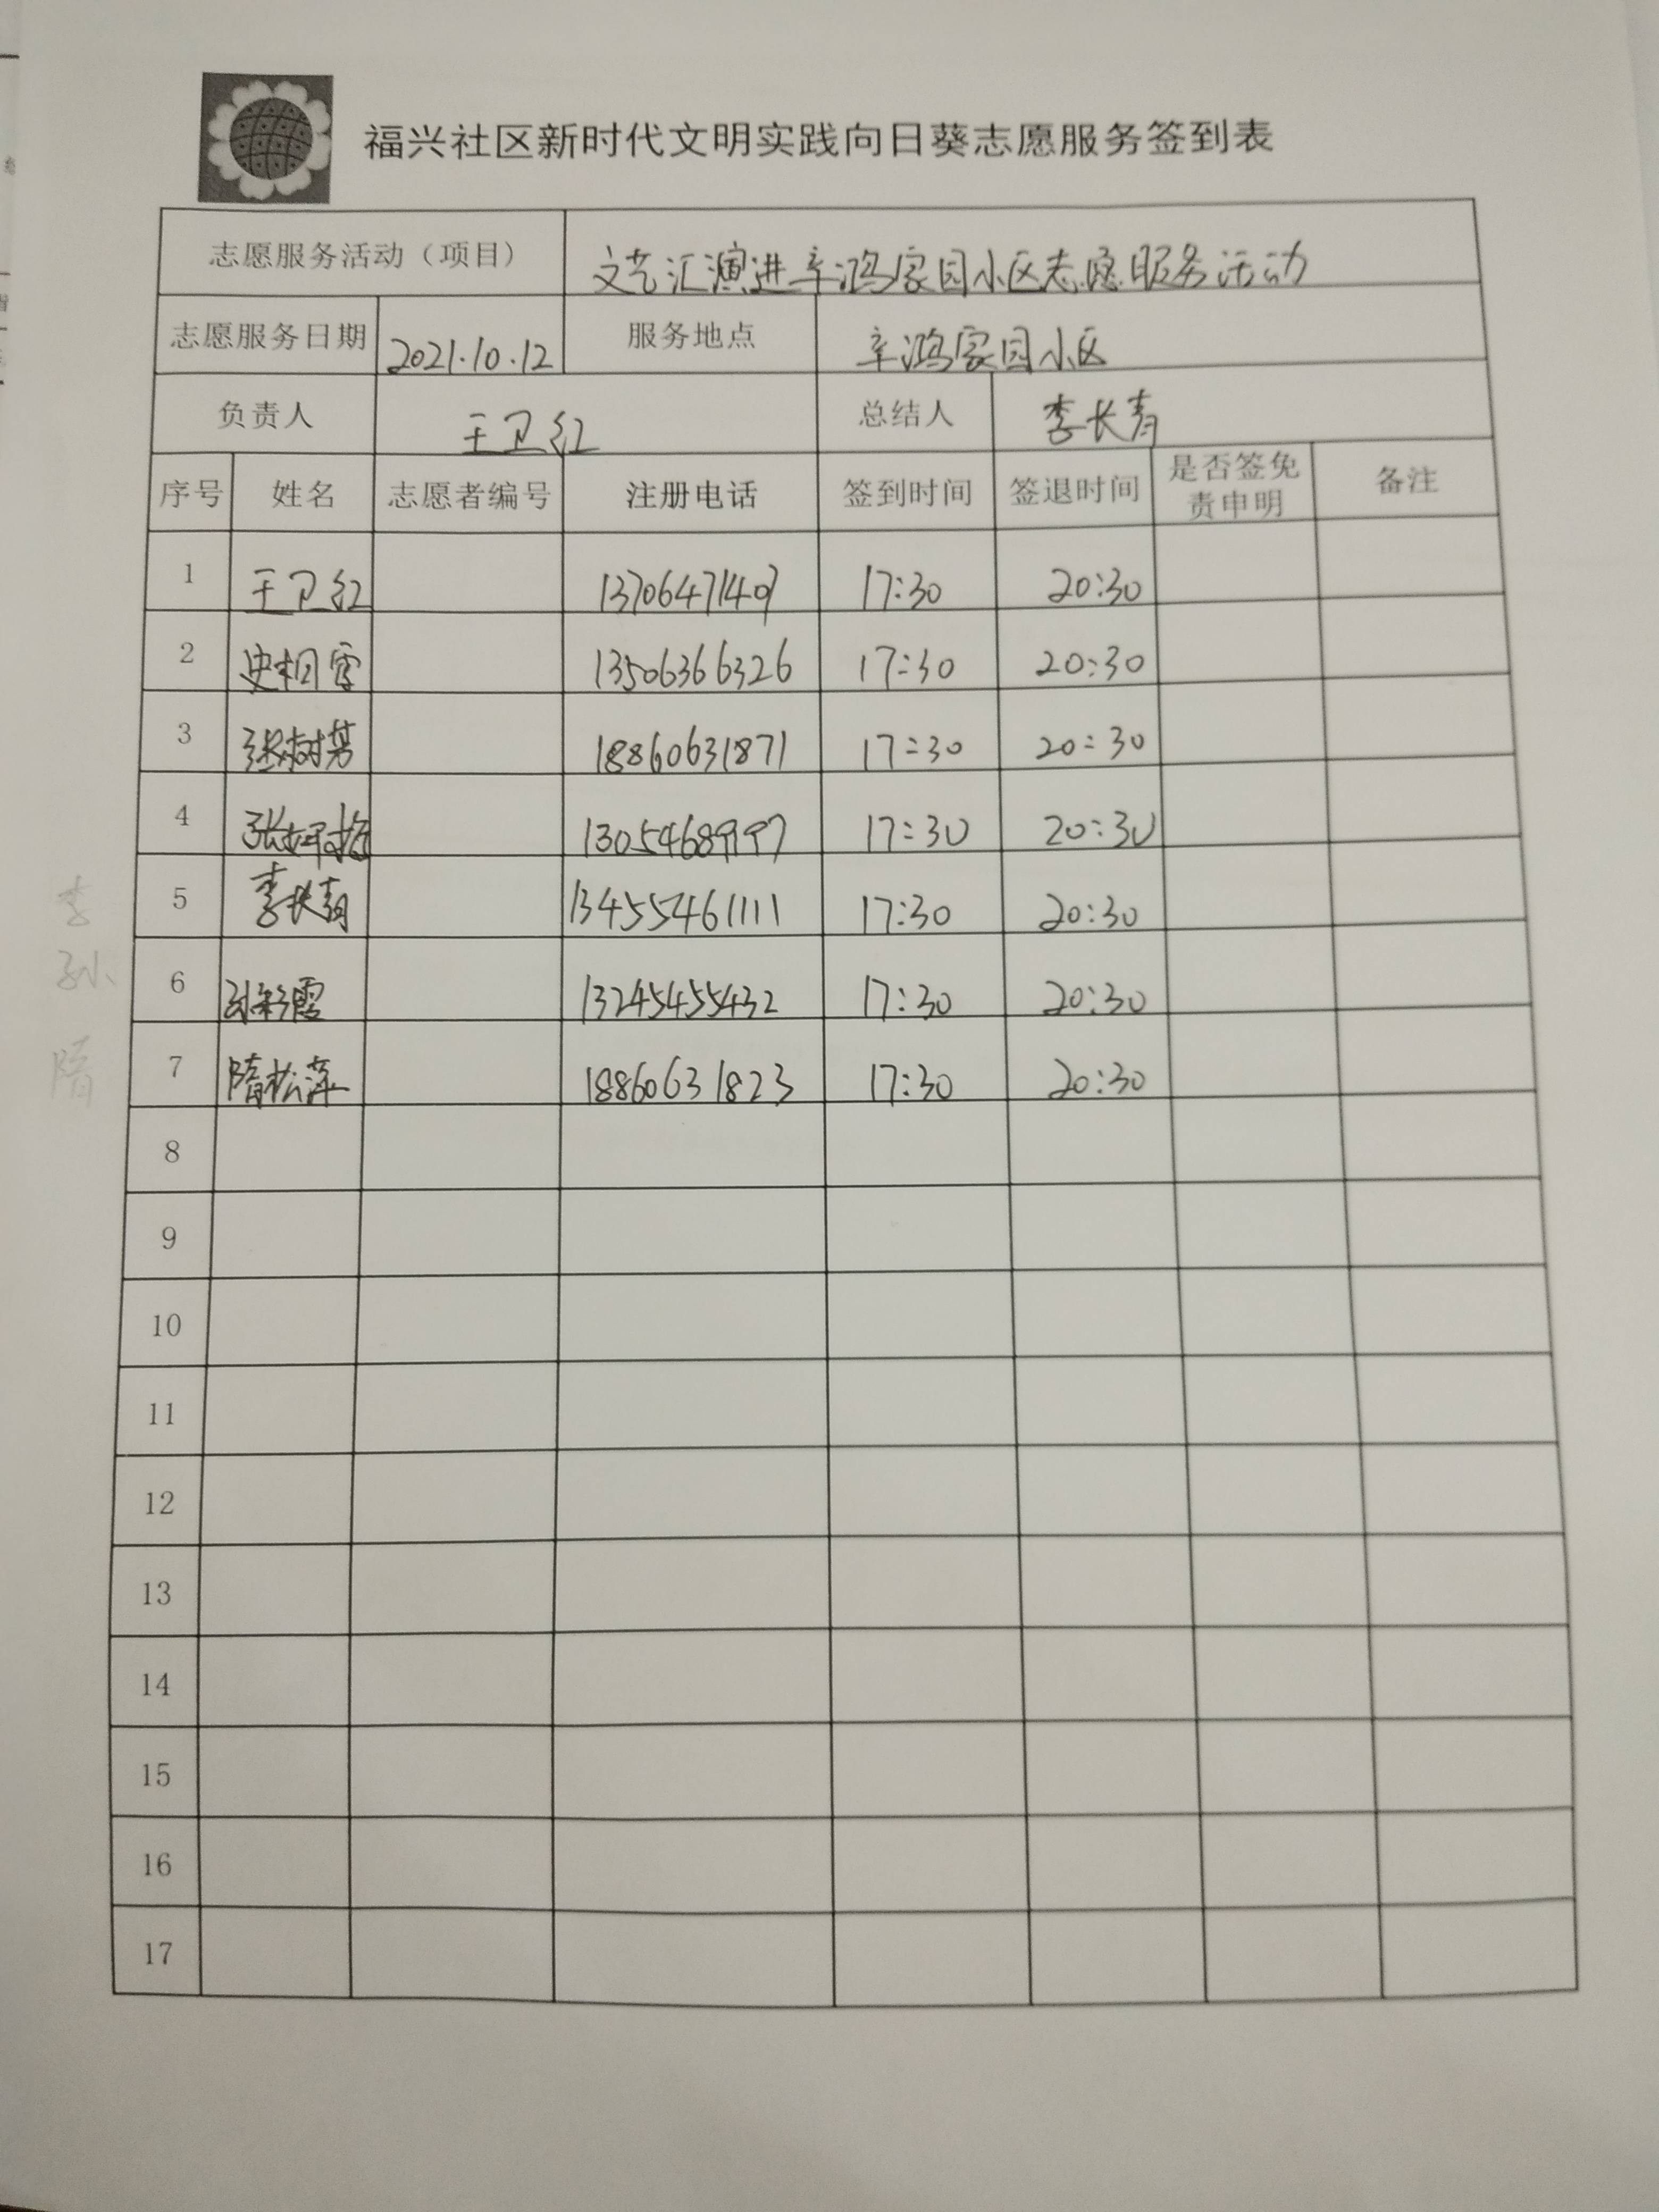 福兴社区新时代文明实践向日葵志愿服务签到表
志愿服务活动（项目） 文艺汇演进辛鸿家园小区志愿服务活动
志愿服务日期 2021.10.12 服务地点 辛鸿家园小区
负责人 王卫红 总结人 李长青
序号 姓名 志愿者编号 注册电话 签到时间 签退时间 是否签免责申明 备注
1 王卫红 13706471409 17:30 20:30
2 史相雪 13506366326 17:30 20:30
3 张树芳 18860631871 17:30 20:30
4 13054689997 17:30 20:30
5 李长青 13455461111 17:30 20:30
李
孙
6 孙彩霞 13245455432 17:30 20:30
隋
7 隋松萍 18860631823 17:30 20:30
8
9
10
11
12
13
14
15
16
17